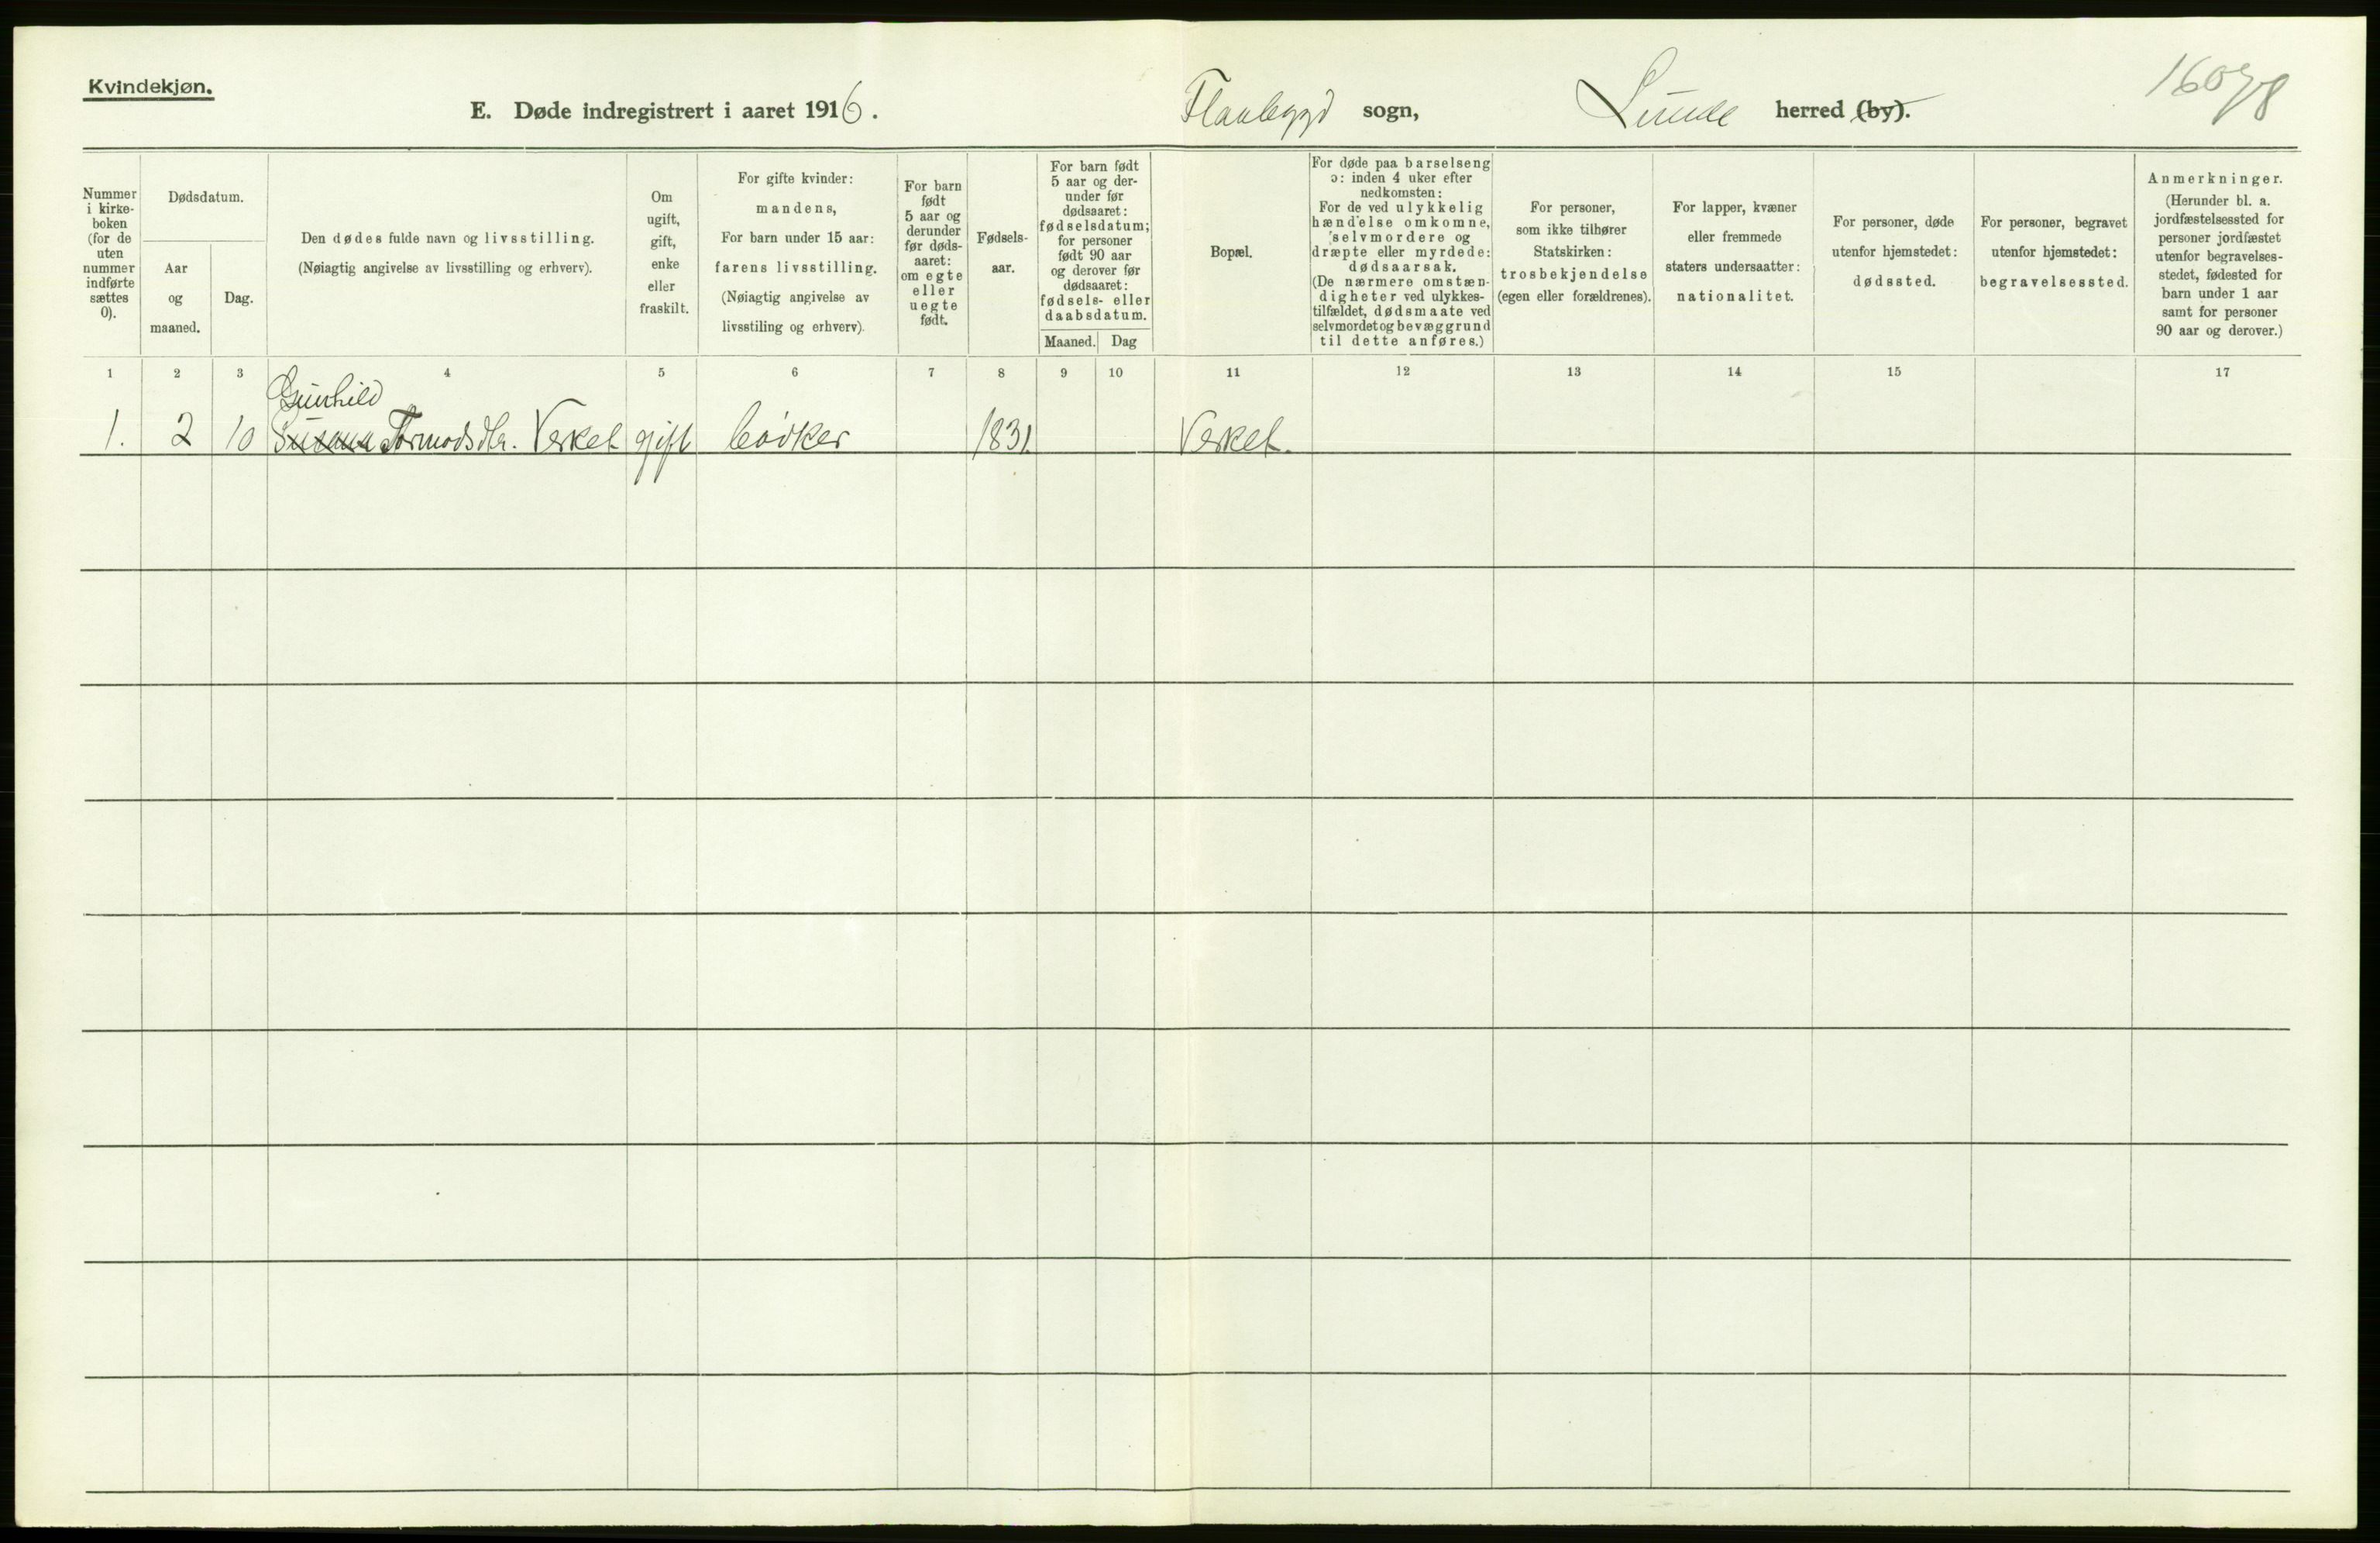 Kvindekjøn.
E. Døde indregistrert i aaret 1916. Flaabygd sogn, Lunde herred (by).
Nummer i kirke-boken (for de uten nummer indførte sættes 0).
Dødsdatum.
Aar og maaned.
Dag.
Den dødes fulde navn og livsstilling.
(Nøiagtig angivelse av livsstilling og erhverv).
Om ugift, gift, enke eller fraskilt.
For gifte kvinder:
mandens,
For barn under 15 aar:
farens livsstilling.
(Nøiagtig angivelse av
livsstiling og erhverv).
For barn født 5 aar og derunder før døds-aaret: om egte eller uegte født.
Fødsels-aar.
For barn født
5 aar og der-
under før
dødsaaret:
fødselsdatum;
for personer
født 90 aar
og derover før
dødsaaret:
fødsels- eller
daabsdatum.
Maaned. Dag
Bopæl.
For døde paa barselseng
ɔ: inden 4 uker efter
nedkomsten:
For de ved ulykkelig
hændelse omkomne,
selvmordere og
dræpte eller myrdede:
dødsaarsak.
(De nærmere omstæn-
digheter ved ulykkes-
tilfældet, dødsmaate ved
selvmordet og bevæggrund
til dette anføres.)
For personer,
som ikke tilhører
Statskirken:
trosbekjendelse
(egen eller forældrenes).
For lapper, kvæner
eller fremmede
staters undersaatter:
nationalitet.
For personer, døde
utenfor hjemstedet:
dødssted.
For personer, begravet
utenfor hjemstedet:
begravelsessted.
Anmerkninger.
(Herunder bl. a.
jordfæstelsessted for
personer jordfæstet
utenfor begravelses-
stedet, fødested for
barn under 1 aar
samt for personer
90 aar og derover.)
1 2 3 4 5 6 7 8 9 10 11 12 13 14 15 17
Gunhild
1. 2 10 Tormodsdtr. Verket gift bødker 1831. Verket.